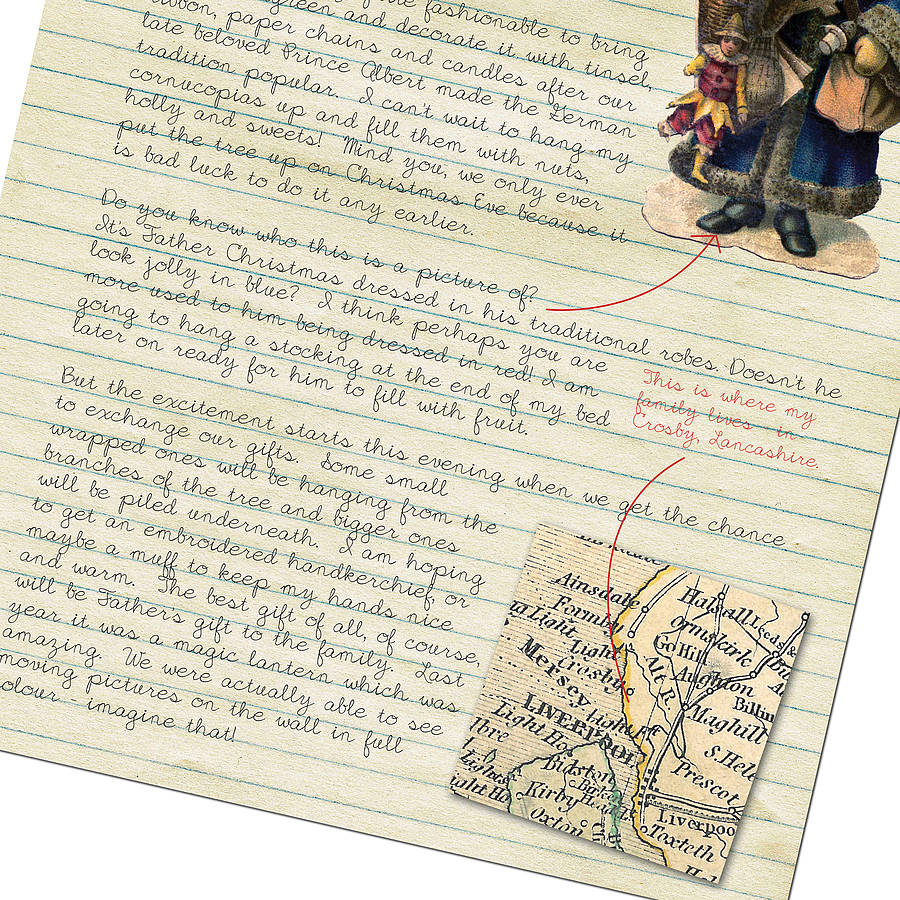 the fashionable to bring
green and decorate it with tinsel,
ribbon, paper chains and candles after our
late beloved Prince Albert made the German
tradition popular. I can't wait to hang my
cornucopias up and fill them with nuts,
holly and sweets! Mind you, we only ever
put the tree up on Christmas Eve because it
is bad luck to do it any earlier.
Do you know who this is a picture of?
It's Father Christmas dressed in his traditional robes. Doesn't he
look jolly in blue? I think perhaps you are
more used to him being dressed in red! I am
going to hang a stocking at the end of my bed
later on ready for him to fill with fruit.
This is where my
family lives - in
Crosby, Lancashire.
But the excitement starts this evening when we get the chance
to exchange our gifts. Some small
wrapped ones will be hanging from the
branches of the tree and bigger ones
will be piled underneath. I am hoping
to get an embroidered handkerchief, or
maybe a muff to keep my hands nice
and warm. The best gift of all, of course,
will be Father's gift to the family. Last
year it was a magic lantern which was
amazing. We were actually able to see
moving pictures on the wall in full
olour - imagine that!
Ainsdale
Formby
Light
Light
Crosby
Mersey
LIVERPOOL
Light
Light Ho
lbre
Lights
ight Ho
Bidston
Kirby
Oxton
Halsall
Ormskirk
Go Hill
Alt R.
Aughton
Billin
Maghill
S. Hele
Prescot
Liverpoo
Toxteth
Hal